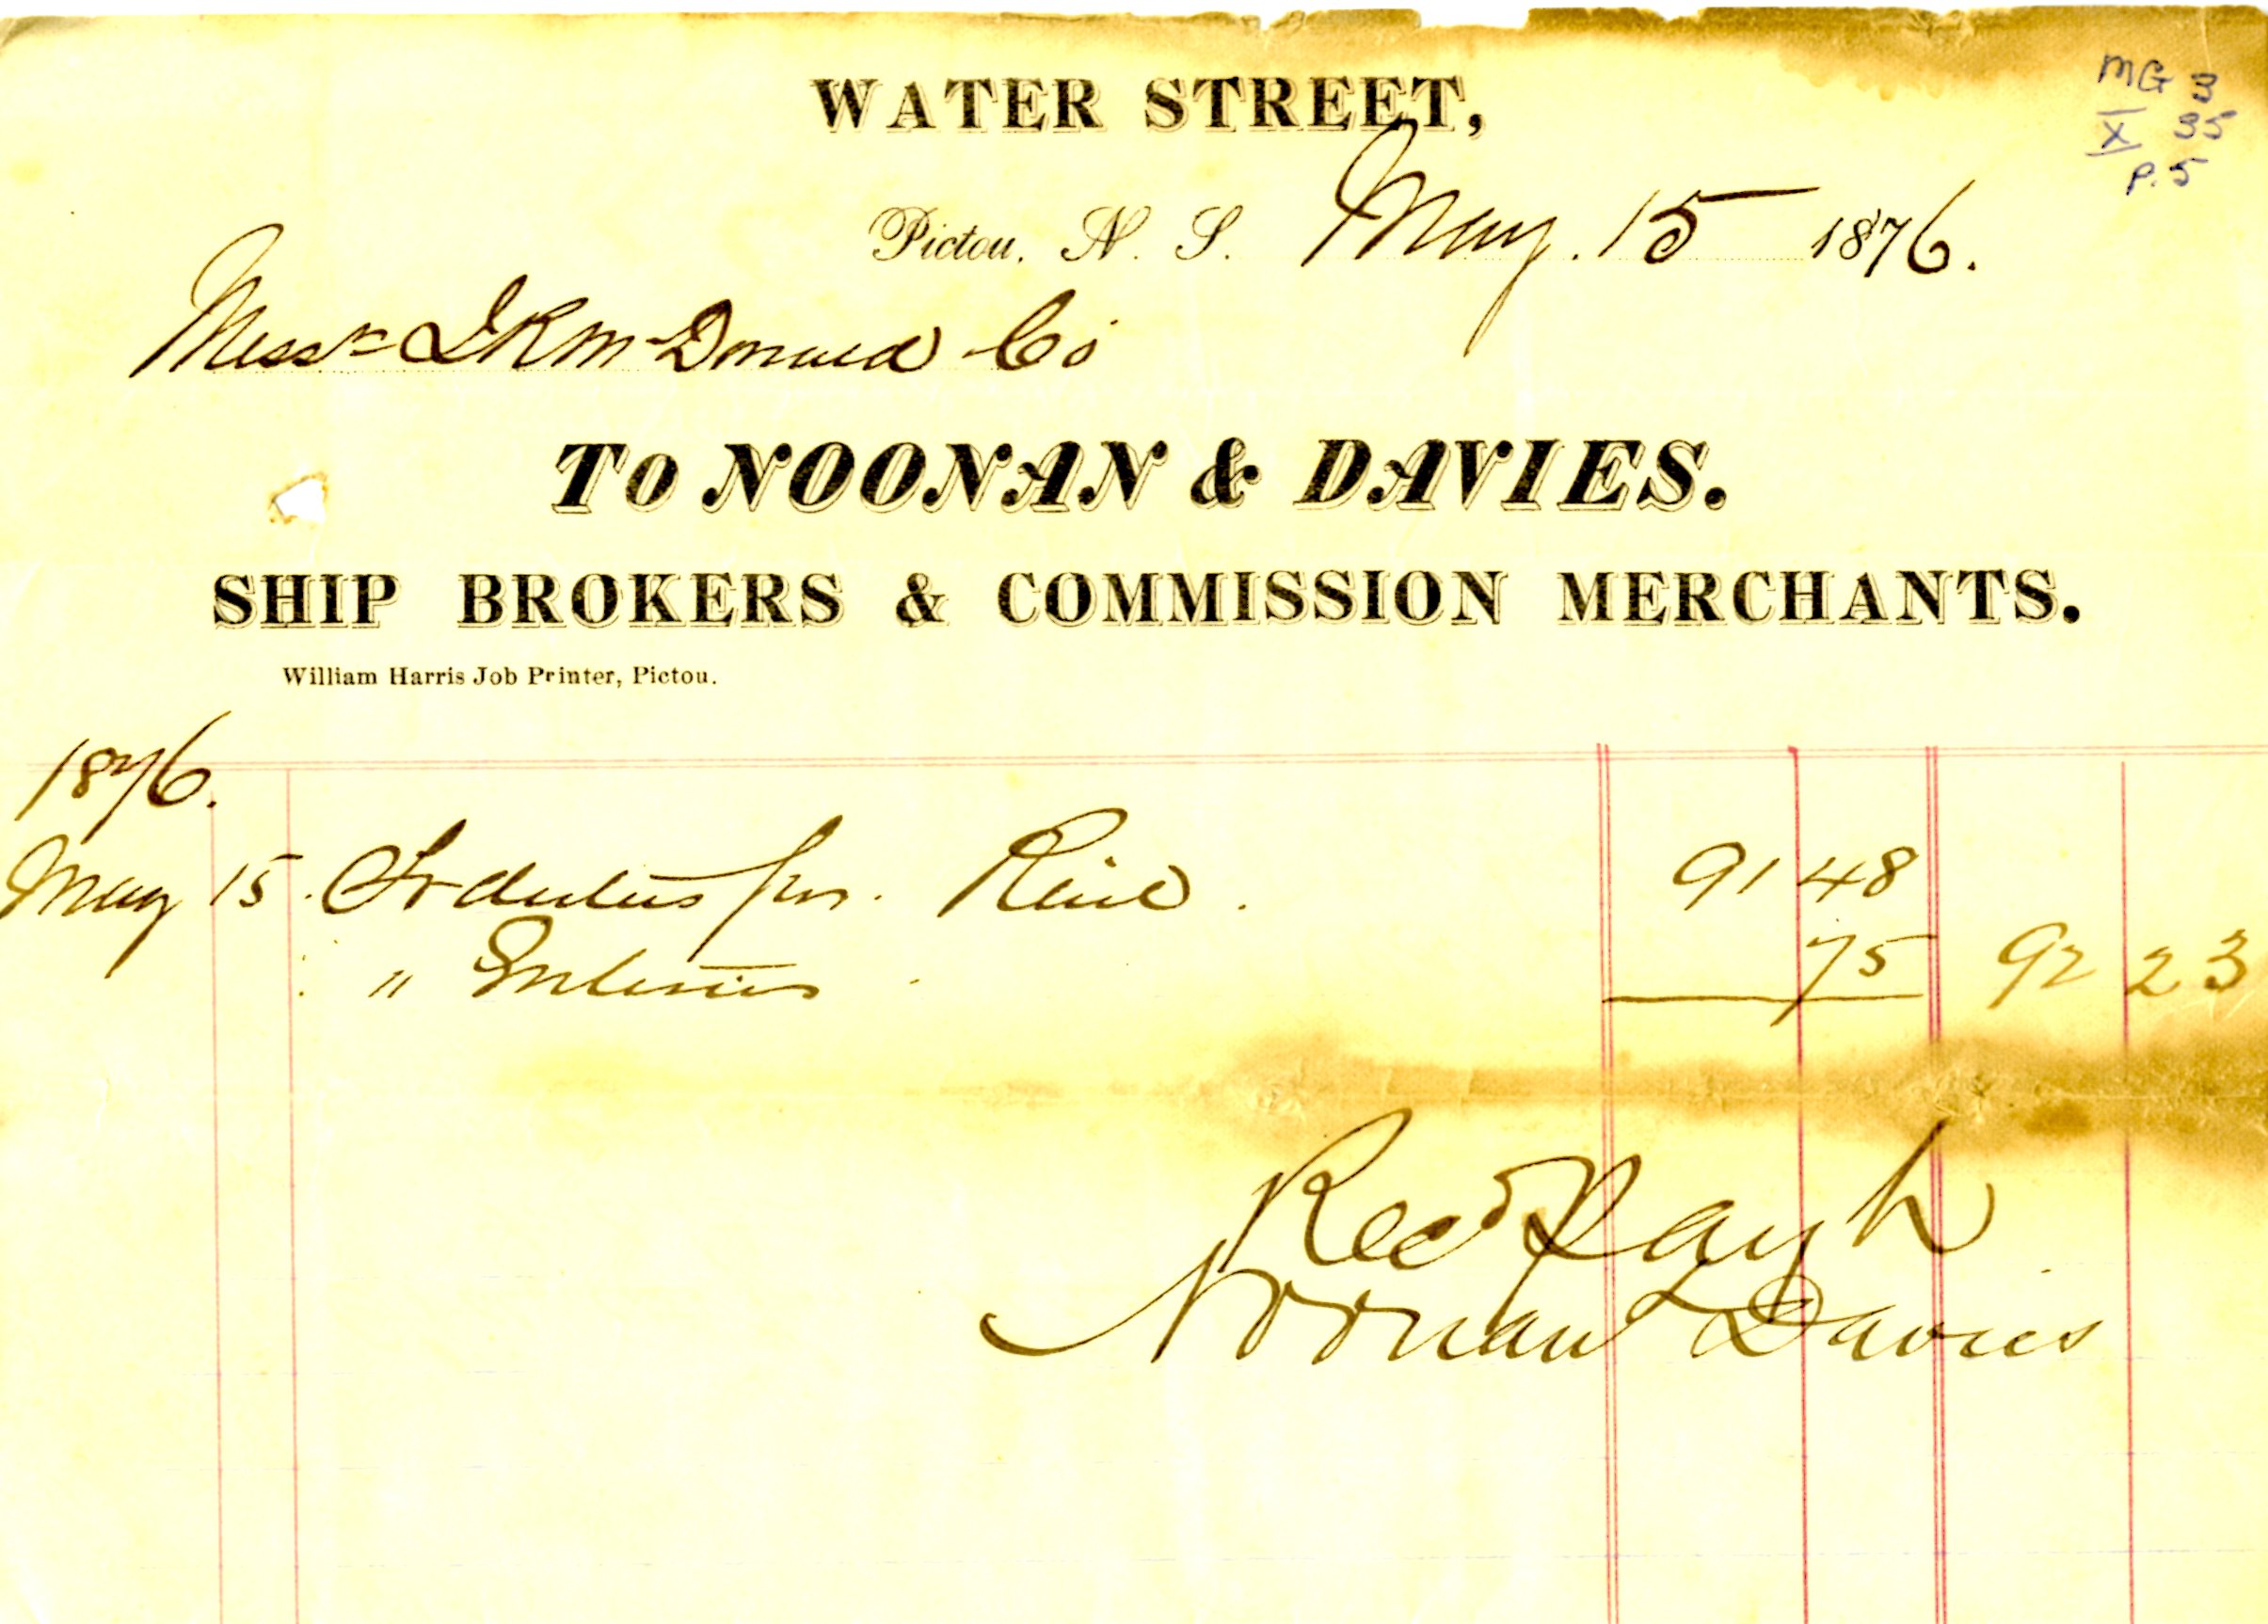 WATER STREET,
MG 3
X 35
P. 5
Pictou, N. S. May. 15 1876.
Messrs J R McDonald Co
To NOONAN & DAVIES.
SHIP BROKERS & COMMISSION MERCHANTS.
William Harris Job Printer, Pictou.
1876.
May 15. To duties 91 48
" Entries 75 92 23
Recd Payt
Noonan & Davies